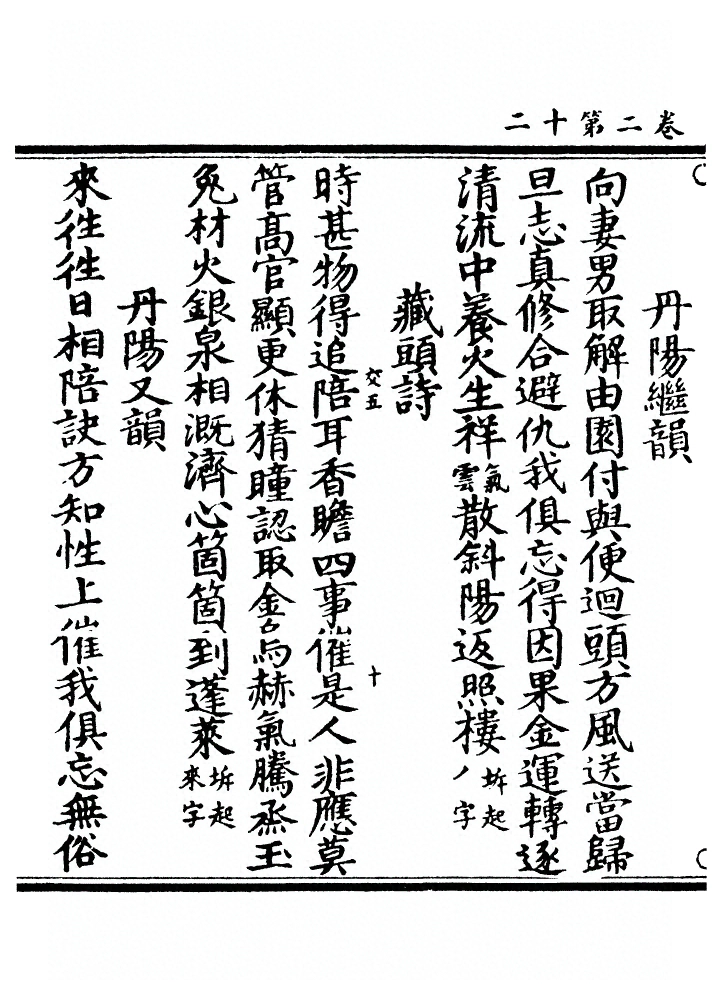 卷二第十二
丹陽繼韻
向妻男取解由園付與便迴頭方風送當歸
旦志真修合避仇我俱忘得因果金運轉逐
清流中養火生祥氣雲散斜陽返照樓坼起丿字
藏頭詩
時甚物得追陪交五耳香瞻四事催十是人非應莫
管高官顯更休猜瞳認取金烏赫氣騰烝玉
兔材火銀泉相溉濟心箇箇到蓬萊坼起來字
丹陽又韻
來往往日相陪訣方知性上催我俱忘無俗